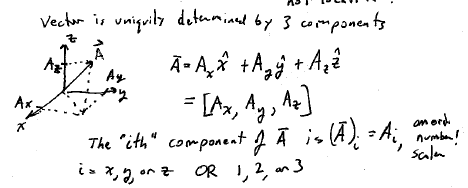 Vector is uniquely determined by 3 components
z
A⃗
Az
Ay
y
Ax
x
Ā = Ax x̂ + Ay ŷ + Az ẑ
= [Ax, Ay, Az]
The "ith" component of Ā is (Ā)i = Ai,
number!
scalar
i = x, y, or z OR 1, 2, or 3